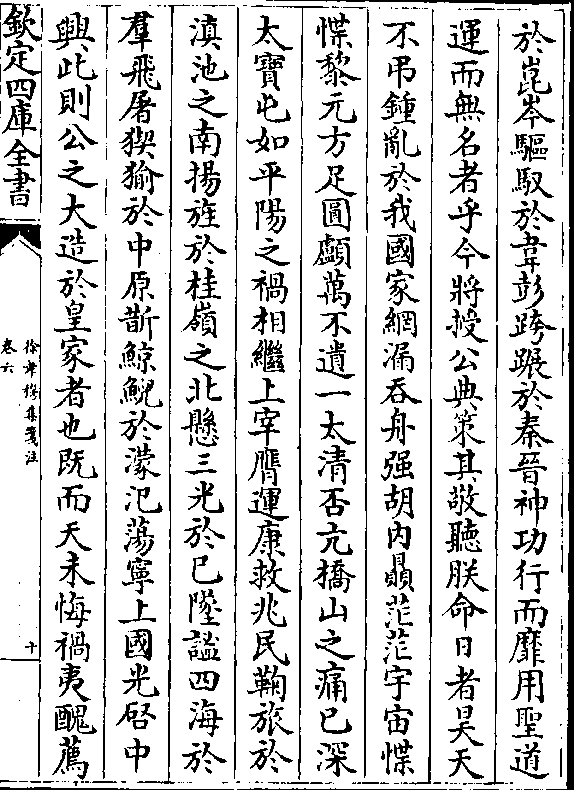 於崑岑驅馭於韋彭跨躡於秦晉神功行而靡用聖道
運而無名者乎今將授公典策其敬聽朕命日者昊天
不弔鍾亂於我國家網漏吞舟强胡内贔茫茫宇宙惵
惵黎元方足圓顱萬不遺一太清否亢橋山之痛已深
太寶屯如平陽之禍相繼上宰膺運康救兆民鞠旅於
滇池之南揚旌於桂嶺之北懸三光於已墜謐四海於
羣飛屠猰㺄於中原斮鯨鯢於濛汜蕩寧上國光啓中
興此則公之大造於皇家者也既而天未悔禍夷醜薦
欽定四庫全書
徐孝穆集箋注
卷六
十